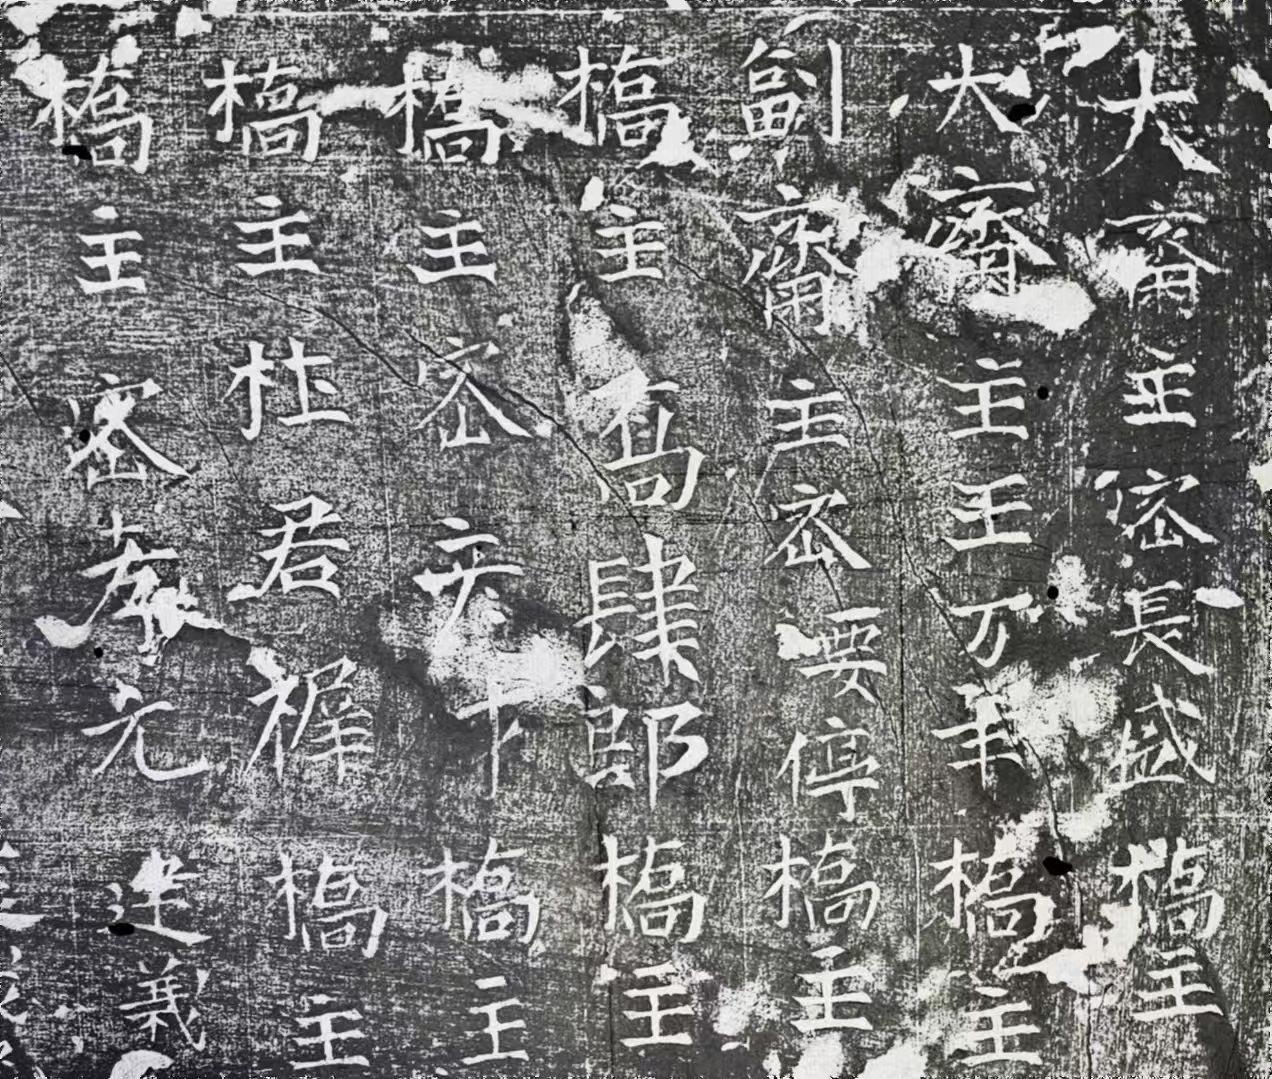 大齋主密長盛橋主
大齋主王万年橋主
副齋主密要停橋主
橋主高肆郎橋主
橋主密亥下橋主
橋主杜君稚橋主
橋主密孝元迷義